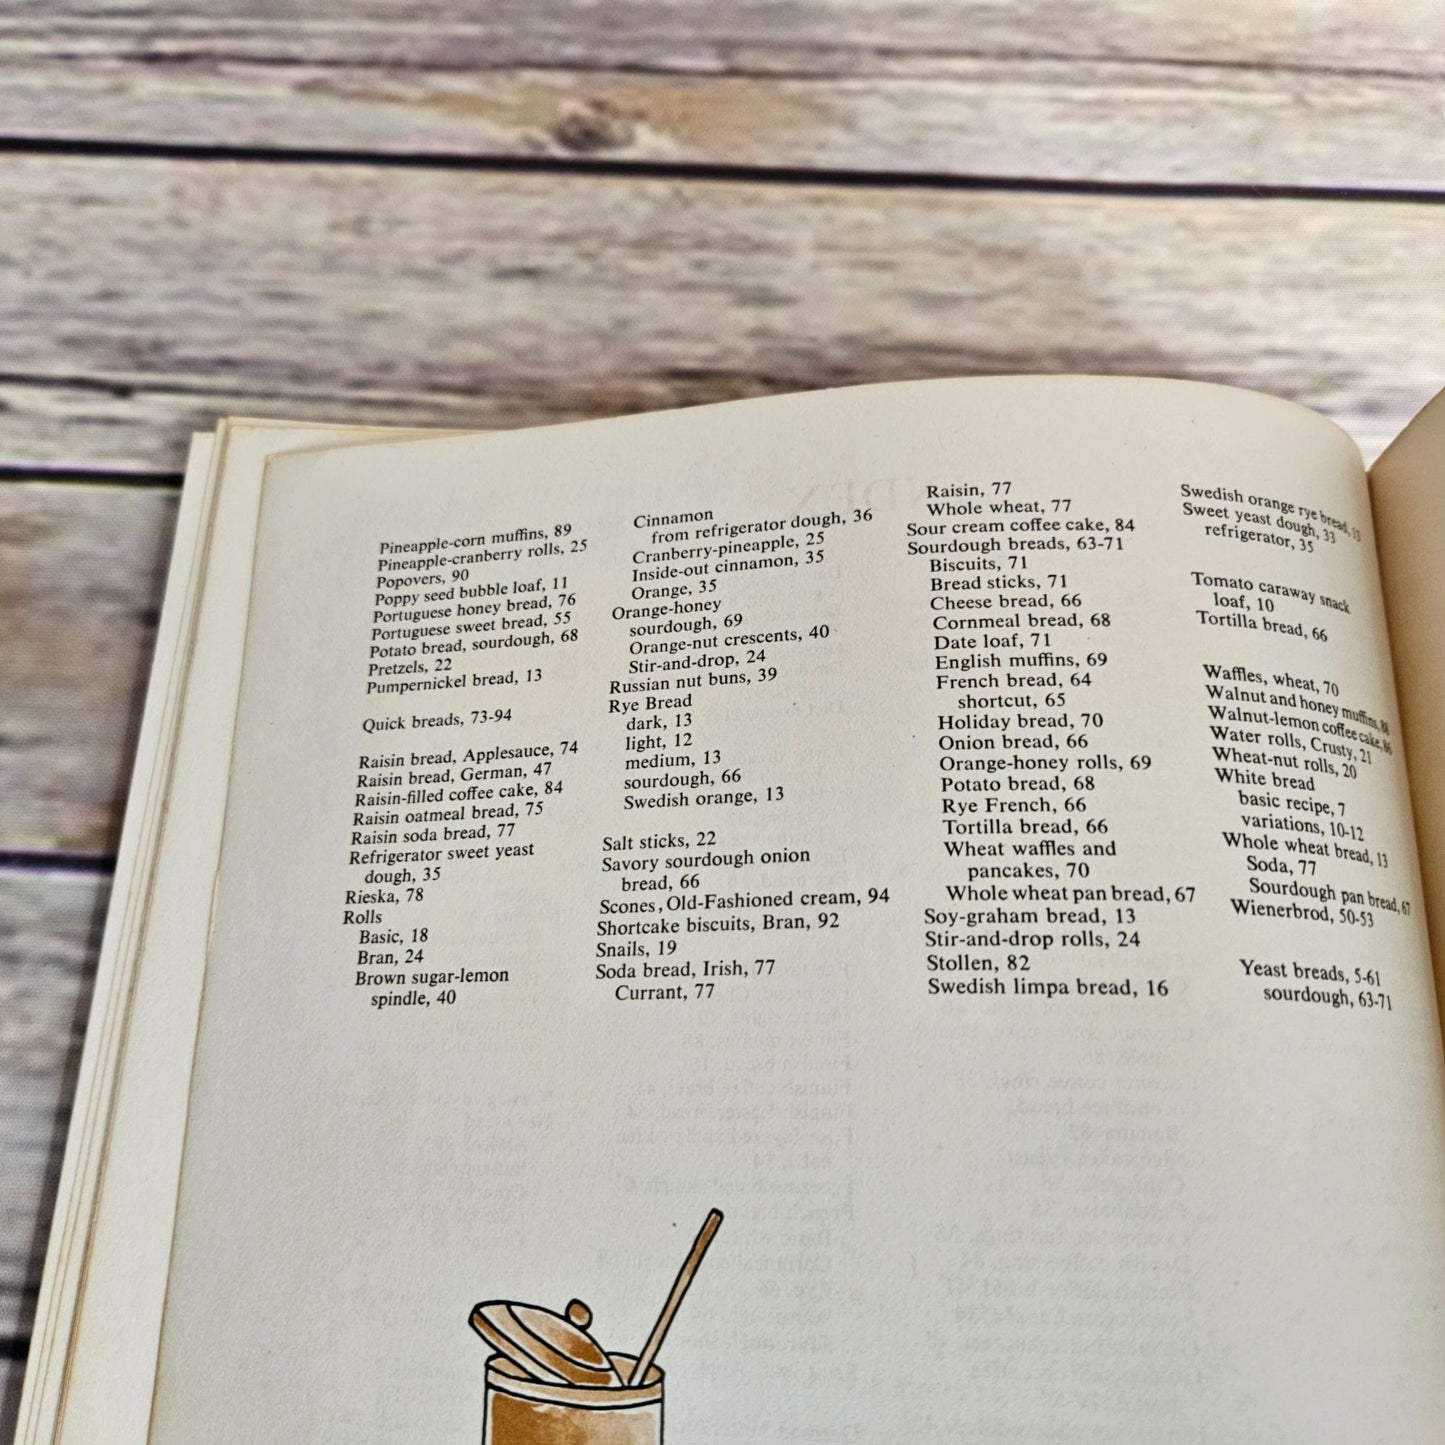 Pineapple-corn muffins, 89
Pineapple-cranberry rolls, 25
Popovers, 90
Poppy seed bubble loaf, 11
Portuguese honey bread, 76
Portuguese sweet bread, 55
Potato bread, sourdough, 68
Pretzels, 22
Pumpernickel bread, 13
Quick breads, 73-94
Raisin bread, Applesauce, 74
Raisin bread, German, 47
Raisin-filled coffee cake, 84
Raisin oatmeal bread, 75
Raisin soda bread, 77
Refrigerator sweet yeast
dough, 35
Rieska, 78
Rolls
Basic, 18
Bran, 24
Brown sugar-lemon
spindle, 40
Cinnamon
from refrigerator dough, 36
Cranberry-pineapple, 25
Inside-out cinnamon, 35
Orange, 35
Orange-honey
sourdough, 69
Orange-nut crescents, 40
Stir-and-drop, 24
Russian nut buns, 39
Rye Bread
dark, 13
light, 12
medium, 13
sourdough, 66
Swedish orange, 13
Salt sticks, 22
Savory sourdough onion
bread, 66
Scones, Old-Fashioned cream, 94
Shortcake biscuits, Bran, 92
Snails, 19
Soda bread, Irish, 77
Currant, 77
Raisin, 77
Whole wheat, 77
Sour cream coffee cake, 84
Sourdough breads, 63-71
Biscuits, 71
Bread sticks, 71
Cheese bread, 66
Cornmeal bread, 68
Date loaf, 71
English muffins, 69
French bread, 64
shortcut, 65
Holiday bread, 70
Onion bread, 66
Orange-honey rolls, 69
Potato bread, 68
Rye French, 66
Tortilla bread, 66
Wheat waffles and
pancakes, 70
Whole wheat pan bread, 67
Soy-graham bread, 13
Stir-and-drop rolls, 24
Stollen, 82
Swedish limpa bread, 16
Swedish orange rye bread, 13
Sweet yeast dough, 33
refrigerator, 35
Tomato caraway snack
loaf, 10
Tortilla bread, 66
Waffles, wheat, 70
Walnut and honey muffins, 88
Walnut-lemon coffee cake, 86
Water rolls, Crusty, 21
Wheat-nut rolls, 20
White bread
basic recipe, 7
variations, 10-12
Whole wheat bread, 13
Soda, 77
Sourdough pan bread, 67
Wienerbrod, 50-53
Yeast breads, 5-61
sourdough, 63-71